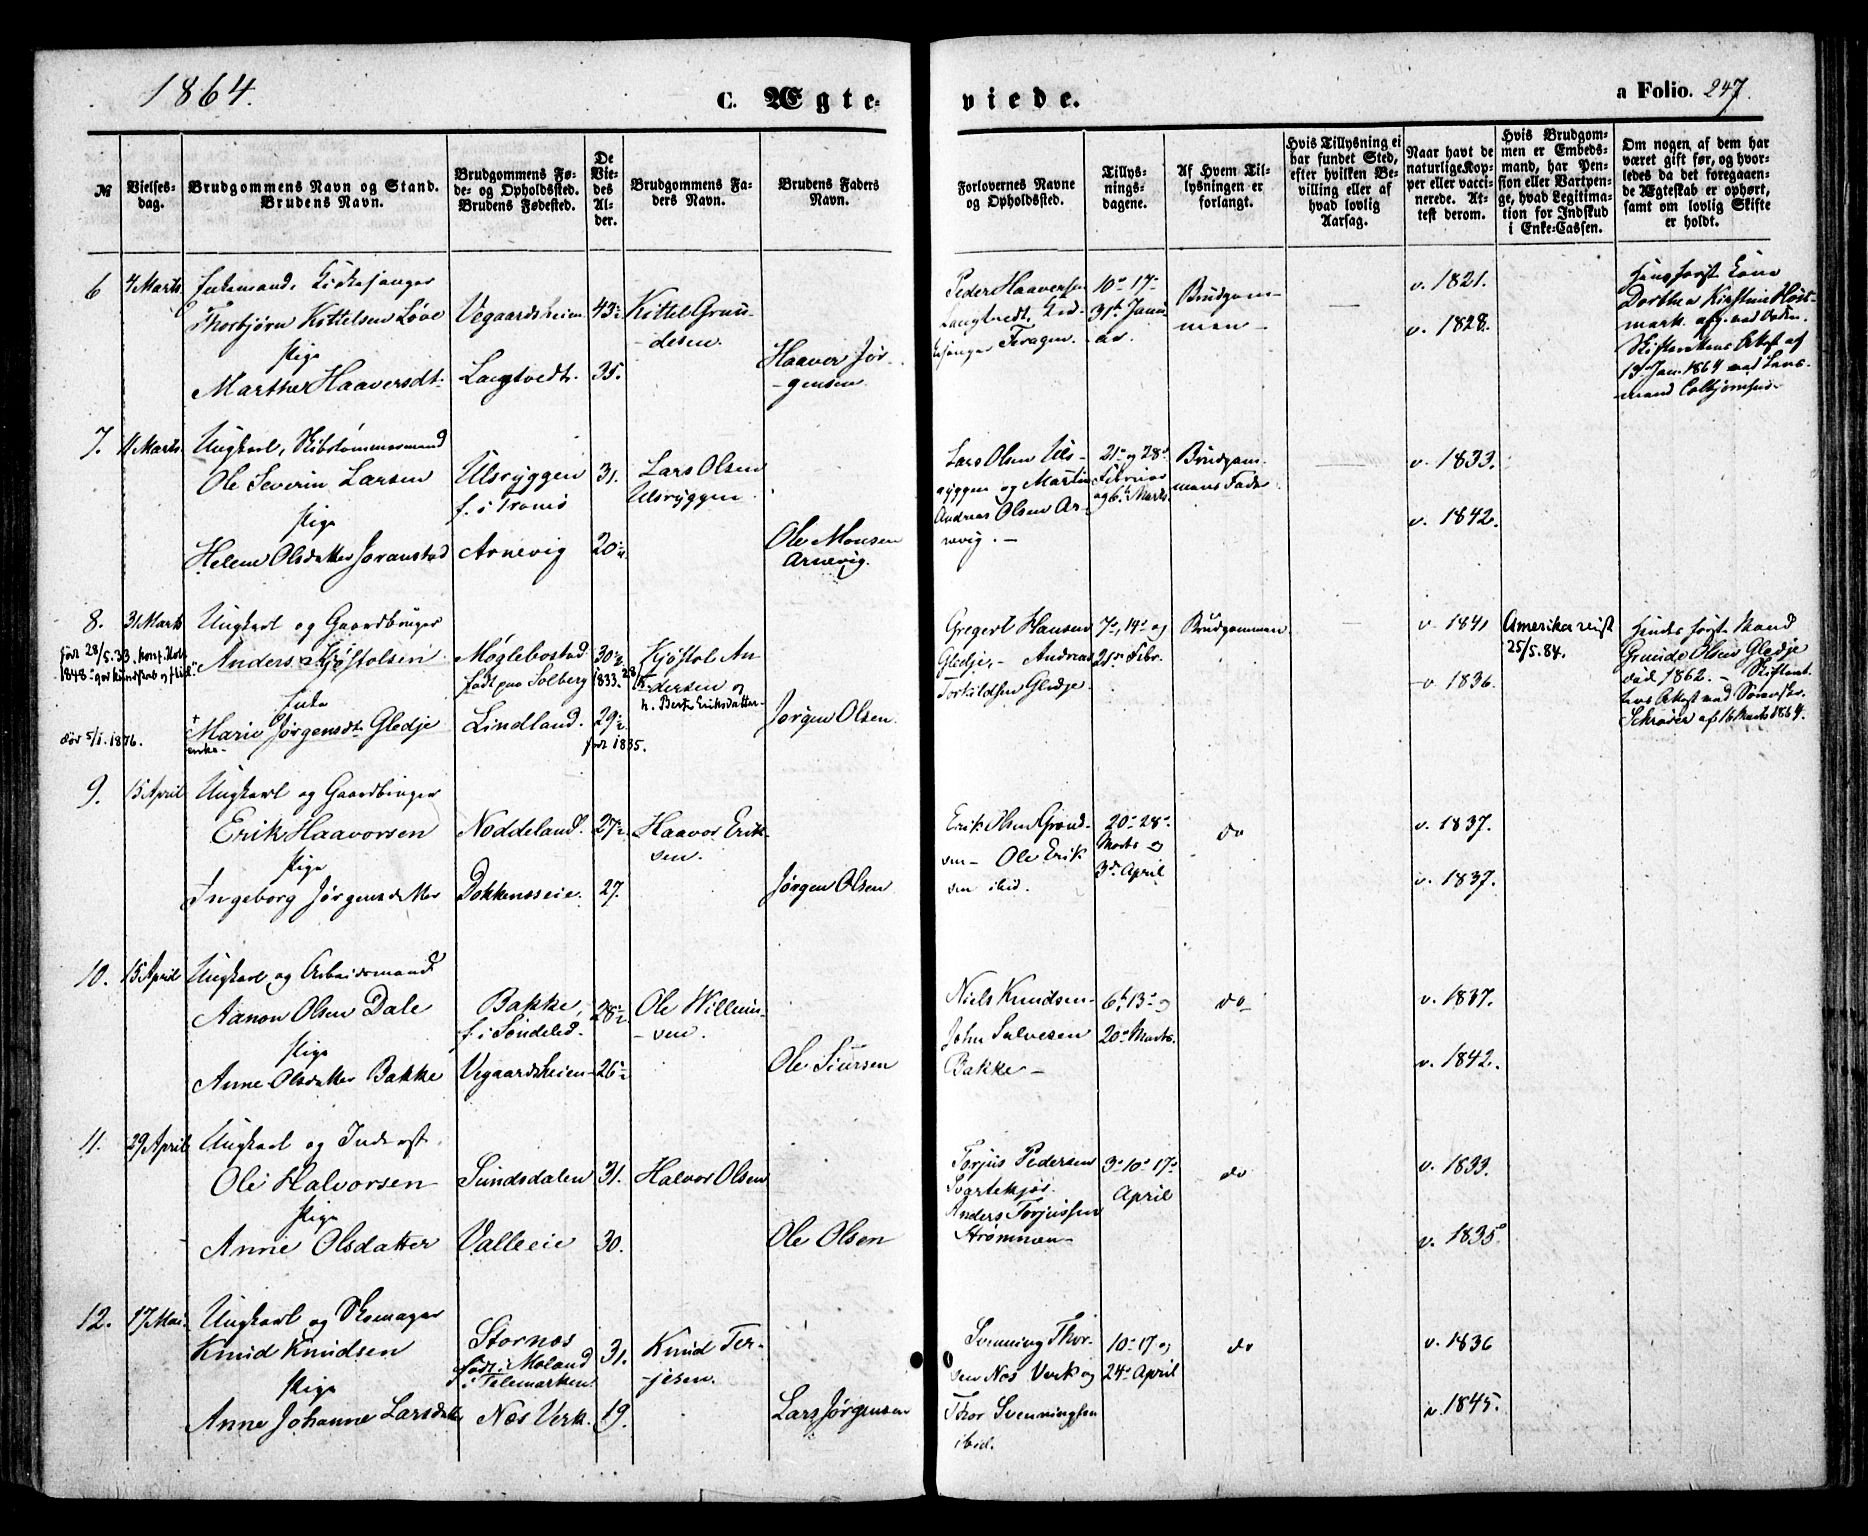 1864.
C. Ægte-
viede.
a Folio. 247.
№
Vielses-
dag.
Brudgommens Navn og Stand.
Brudens Navn.
Brudgommens Fø-
de- og Opholdssted.
Brudens Fødested.
De
Vie-
des
Al-
der.
Brudgommens Fa-
ders Navn.
Brudens Faders
Navn.
Forlovernes Navne
og Opholdssted.
Tillys-
nings-
dagene.
Af Hvem Til-
lysningen er
forlangt.
Hvis Tillysning ei
har fundet Sted,
efter hvilken Be-
villing eller af
hvad lovlig
Aarsag.
Naar havt de
naturlige Kop-
per eller vacci-
nerede. At-
test derom.
Hvis Brudgom-
men er Embeds-
mand, har Pen-
sion eller Vartpen-
ge, hvad Legitima-
tion for Indskud
i Enke-Cassen.
Om nogen af dem har
været gift før, og hvor-
ledes da det foregaaen-
de Ægteskab er ophørt,
samt om lovlig Skifte
er holdt.
6
4 Marts
Enkemand, Kirkesanger
Thorbjørn Kittelsen Løve
Pige
Marthe Haaversdt.
Vegaardsheien
Langtvedt.
43
35.
Kittel Grun-
desen.
Haaver Jør-
gensen
Peder Haaversen
Langtvedt. Kir-
kesanger
10 17
31te Janu-
ar.
Brudgom-
men
v. 1821.
v. 1828.
Hans første Kone
Dorthea Kirstine
13 Jan. 1864 ved Lens-
mand
7.
11 Marts.
Ungkarl, Skibstømmermand
Ole Severin Larsen
Pige
Helene Olsdatter Joranstad
Ulsryggen
f. i Tromø
Arnevig
31.
20
Lars Olsen
Ulsryggen
Ole Monsen
Arnevig.
Lars Olsen Uls-
ryggen og Martin
Andreas Olsen Ar-
nevig. -
21 og 28
Februar
og 6te Marts.
Brudgom-
mens Fader
v. 1833.
v. 1842.
8.
31 Marts
født 28/5.33. konf.
1848
Ungkarl og Gaardbruger
Anders Kjøstolsen
Enke
Marie Jørgensdt. Gledje
enke
dør 5/1.1876.
Møglebostad
født paa Solberg
Lindland.
30
1833. 28/5
29
født 1835.
Kjøstol An-
dersen og
h. Berte Eriksdatter.
Jørgen Olsen.
Gregert Hansen
Gledje, - Andreas
Torkildsen Gledje.
7, 14 og
21 Febr.
Brudgommen.
v. 1841
v. 1836.
Amerika reist
25/5.84.
Hendes første Mand
Grunde Olsen Gledje
død 1862. -
af 16 Marts 1864.
9.
15 April
Ungkarl og Gaardbruger
Erik Haavorsen
Pige
Ingeborg Jørgensdatter
Noddeland.
Dokkenseie.
27
27.
Haavor Erik-
sen.
Jørgen Olsen
Erik Olsen
Ole Erik-
sen ibid.
20 28
Marts og
3die April
do
v. 1837.
v. 1837.
10.
15 April
Ungkarl og Arbeidsmand
Aanon Olsen Dale
Pige
Anne Olsdatter Bakke
Bakke,
f. i Søndeled.
Vegaardsheien
28
26
Ole Willum-
sen
Ole Siursen
Niels Knudsen
John Salvesen
Bakke -
6te 13 og
20 Marts.
do
v. 1837.
v. 1842.
11.
29 April
Ungkarl og Inderst.
Ole Halvorsen
Pige
Anne Olsdatter
Sundsdalen
Valleeie
31.
30.
Halvor Olsen
Ole Olsen
Torjus Pedersen
Svartekjøs.
Anders Torjussen
Strømmen
3 10 17
April
do
v. 1833.
v. 1835.
12.
17 Mai.
Ungkarl og Skomager
Knud Knudsen
Pige
Anne Johanne Larsdatter
Stornæs
født i Moland
i Telemarken.
Næs Verk.
31.
19.
Knud Ter-
jesen.
Lars Jørgensen
Svenning Thor-
sen Næs Verk og
Thor Svenningsen
ibid.
10 17 og
24 April
do
v. 1836
v. 1845.